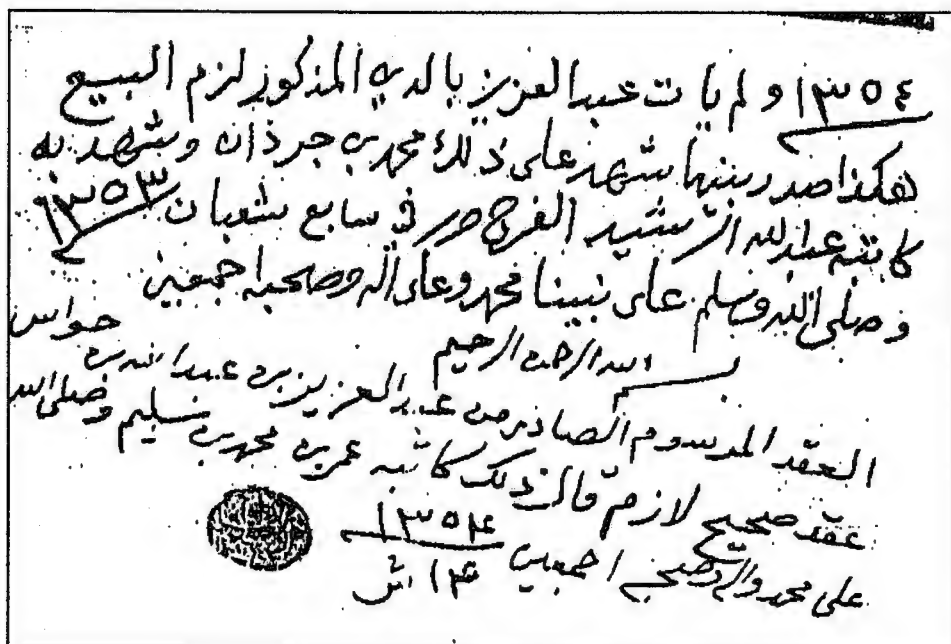 ١٣٥٤ ولم يات عبدالعزيز بالدين المذكور لزم البيع
هكذا صدر بينهما شهد على ذلك محمد بن جرذان وشهد به
كاتبه عبدالله الرشيد الفرج حرر في سابع شعبان ١٣٥٣
وصلى الله وسلم على نبينا محمد وعلى اله وصحبه اجمعين
بسم الله الرحمن الرحيم
العقد المرسوم الصادر من عبدالعزيز بن عبدالله بن حواس
عقد صحيح لازم قال ذلك كاتبه عمر بن محمد بن سليم وصلى الله
على محمد واله وصحبه اجمعين ١٣٥٤
١٤ ش